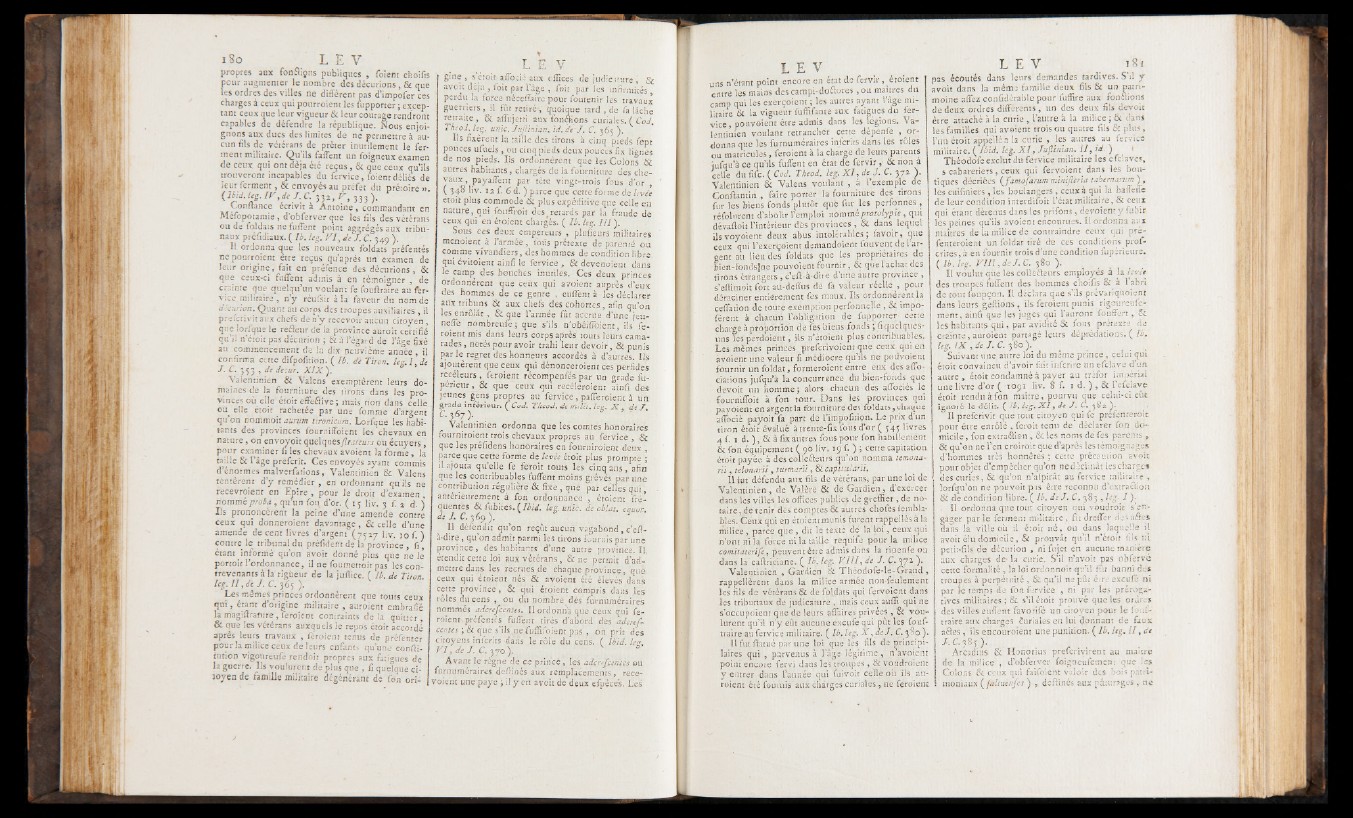 180 L E V
propres aux fonctions publiques , soient choisis
pour augmenter le nombre des décurions, & que
les ordres des villes ne diffèrent pas d'imposer ces
charges à ceux qui pourroient les supporter ; excep-
tant ceux que leur vigueur & leur courage rendront
capables de défendre la république. Nous enjoi-
gnons aux ducs des limites de ne permettre à au-
cun fils de vétérans de prêter inutilement le ser-
ment militaire. Qu'ils fassent un soigneux examen
de ceux qui ont déja été reçus, & que ceux qu'ils
trouveront incapables du service, soient déliés de
leur serment , & envoyés au préfet du prétoire ».
( Ibid. leg. IV, de J. C. 332, V, 333 ).
Constance écrivit à Antoine , commandant en
Mésopotamie , d'observer que les fils des vétérans
ou de soldats ne fussent point aggrégés aux tribu-
naux présidiaux. ( Ib. leg. VI, de J. C. 349 ).
Il ordonna que les nouveaux soldats présentés
ne pourroient être reçus qu'après un examen de
leur origine, fait en présence des décurions , &
que ceux-ci fussent admis à en témoigner , de
crainte que quelqu'un voulant se soustraire au ser-
vice militaire , n'y réussît à la faveur du nom de
décurion. Quant au corps des troupes auxiliaires , il
prescrivit aux chefs de n'y recevoir aucun citoyen ,
que lorsque le recteur de la province auroit certifié
qu'il n'étoit pas décurion ; & à l'égard de l'âge fixé
au commencement de la dix neuvième année , il
confirma cette disposition. ( Ib. de Tiron. leg. I, de
J. C. 353 , de decur. XIX ).
Valentinien & Valens exemptèrent leurs do-
maines de la fourniture des tirons dans les pro-
vinces où elle étoit effective ; mais non dans celle
où elle étoit rachetée par une somme d'argent
qu'on nommoit aurum tironicum. Lorsque les habi-
tants des provinces fournissoient les chevaux en
nature , on envoyoit quelques strateurs ou écuyers ,
pour examiner si les chevaux avoient la forme , la
taille & l'âge prescrit. Ces envoyés ayant commis
d'énormes malversations, Valentinien & Valens
tentèrent d'y remédier , en ordonnant qu'ils ne
recevroient en Epire , pour le droit d'examen ,
nommé proba , qu'un sou d'or. ( 15 liv. 3 s. 2 d. )
Ils prononcèrent la peine d'une amende contre
ceux qui donneroient davantage , & celle d'une
amende de cent livres d'argent ( 7527 liv. 10 s. )
contre le tribunal du président de la province , si,
étant informé qu'on avoit donné plus que ne le
portoit l'ordonnance, il ne soumettoit pas les con-
trevenants à la rigueur de la justice. ( Ib. de Tiron.
leg. II, de J. C. 365 ).
Les mêmes princes ordonnèrent que tous ceux
qui , étant d'origine militaire , auroient embrassé
la magistrature , seroient contraints de la quitter,
& que les vétérans auxquels le repos étoit accordé
après leurs travaux , seroient tenus de présenter
pour la milice ceux de leurs enfants qu'une consti-
tution vigoureuse rendoit propres aux fatigues de
la guerre. Ils voulurent de plus que , si quelque ci-
toyen de famille militaire dégénérant de son ori-
L E V
gine , s'étoit associé aux offices de judicature , &
avoit déja , soit par l'âge , soit par les infirmités ,
perdu la force nécessaire pour soutenir les travaux
guerriers , il fût retiré , quoique tard , de sa lâche
retraite , & assujetti aux fonctions curiales. ( Cod.
Theod. leg. unic. Justinian. id. de J. C. 365 ).
Ils fixèrent la taille des tirons à cinq pieds sept
pouces usuels, ou cinq pieds deux pouces six lignes
de nos pieds. Ils ordonnèrent que les Colons &
autres habitants , chargés de la fourniture des che-
vaux , payassent par tête vingt-trois sous d'or ,
( 348 liv. 12 s. 6 d. ) parce que cette forme de levée
étoit plus commode & plus expéditive que celle en
nature, qui souffroit des retards par la fraude de
ceux qui en étoient chargés. ( Ib. leg. III ).
Sous ces deux empereurs , plusieurs militaires
menoient à l'armée , sous prétexte de parenté ou
comme vivandiers, des hommes de condition libre
qui évitoient ainsi le service , & devenoient dans
le camp des bouches inutiles. Ces deux princes
ordonnèrent que ceux qui avoient auprès d'eux
des hommes de ce genre , eussent à les déclarer
aux tribuns & aux chefs des cohortes, afin qu'on
les enrôlât , & que l'armée fût accrue d'une jeu-
nesse nombreuse ; que s'ils n'obéissoient, ils se-
roient mis dans leurs corps après tous leurs cama-
rades , notés pour avoir trahi leur devoir , & punis
par le regret des honneurs accordés à d'autres. Ils
ajoutèrent que ceux qui dénonceroient ces perfides
recéleurs , seroient récompensés par un grade su-
périeur , & que ceux qui recéleroient ainsi des
jeunes gens propres au service , passeroient à un
grade inférieur. ( Cod. Theod. de milit. leg. X , de J.
C. 367 ).
Valentinien ordonna que les comtes honoraires
fourniroient trois chevaux propres au service , &
que les présidens honoraires en fourniroient deux ,
parce que cette forme de levée étoit plus prompte ;
il ajouta qu'elle se feroit tous les cinq ans , afin
que les contribuables fussent moins grévés par une
contribution régulière & fixe , que par celles qui ,
antérieurement à son ordonnance , étoient fré-
quentes & subites. ( Ibid. leg. unic. de oblat. equor.
de J. C. 369 ).
Il défendit qu'on reçût aucun vagabond , c'est-
à-dire , qu'on admît parmi les tirons fournis par une
province , des habitants d'une autre province. Il
étendit cette loi aux vétérans , & ne permit d'ad-
mettre dans les recrues de chaque province , que
ceux qui étoient nés & avoient été élevés dans
cette province , & qui étoient compris dans les
rôles du cens , ou du nombre des surnuméraires
nommés adcrescentes. Il ordonna que ceux qui se-
roient présentés fussent tirés d'abord des adcres-
centes ; & que s'ils ne suffisoient pas , on prît des
citoyens inscrits dans le rôle du cens. ( Ibid. leg.
VI, de J. C. 370 ).
Avant le règne de ce prince , les adcrescentes ou
surnuméraires destinés aux remplacements , rece-
voient une paye ; il y en avoit de deux espèces. Les
L E V
uns n'étant point encore en état de servir , étoient
entre les mains des campi-ductores , ou maîtres du
camp qui les exerçoient ; les autres ayant l'âge mi-
litaire & la vigueur suffisante aux fatigues du ser-
vice , pouvoient être admis dans les légions. Va-
lentinien voulant retrancher cette dépense , or-
donna que les surnuméraires inscrits dans les rôles
ou matricules , seroient à la charge de leurs parents
jusqu'à ce qu'ils fussent en état de servir , & non à
celle du fisc. ( Cod. Theod. leg. XI, de J. C. 372 ).
Valentinien & Valens voulant , à l'exemple de
Constantin , faire porter la fourniture des tirons
sur les biens fonds plutôt que sur les personnes ,
résolurent d'abolir l'emploi nommé prototypie , qui
dévastoit l'intérieur des provinces , & dans lequel
ils voyoient deux abus intolérables ; savoir , que
ceux qui l'exerçoient demandoient souvent de l'ar-
gent au lieu des soldats que les propriétaires de
bien-fonds ne pouvoient fournir , & que l'achat des
tirons étrangers , c'est-à-dire d'une autre province ,
s'estimoit fort au-dessus de sa valeur réelle , pour
déraciner entièrement ces maux. Ils ordonnèrent la
cessation de toute exemption personnelle , & impo-
sèrent à chacun l'obligation de supporter cette
charge à proportion de ses biens fonds ; si quelques-
uns les perdoient , ils n'étoient plus contribuables.
Les mêmes princes prescrivoient que ceux qui en
avoient une valeur si médiocre qu'ils ne pouvoient
fournir un soldat , formeroient entre eux des asso-
ciations jusqu'à la concurrence du bien-fonds que
devoit un homme ; alors chacun des associés le
fournissoit à son tour. Dans les provinces qui
payoient en argent la fourniture des soldats, chaque
associé payoit sa part de l'imposition. Le prix d'un
tiron étoit évalué à trente-six sous d'or ( 545 livres
4 s. 1 d. ), & à six autres sous pour son habillement
& son équipement ( 90 liv. 19 s. ) ; cette capitation
étoit payée à des collecteurs qu'on nomma temona-
rii , telonarii , turmarii , & capitularii.
Il fut défendu aux fils de vétérans, par une loi de
Valentinien , de Valère & de Gardien , d'exercer
dans les villes les offices publics de greffier , de no-
taire , de tenir des comptes & autres choses sembla-
bles. Ceux qui en étoient munis furent rappellés à la
milice , parce que , dit le texte de la loi , ceux qui
n'ont ni la force ni la taille requise pour la milice
comitatense , peuvent être admis dans la ripense ou
dans la castriciane. ( Ib. leg. VIII, de J. C. 372 ).
Valentinien , Gardien & Théodose-le-Grand ,
rappellèrent dans la milice armée non-seulement
les fils de vétérans & de soldats qui servoient dans
les tribunaux de judicature , mais ceux aussi qui ne
s'occupoient que de leurs affaires privées , & vou-
lurent qu'il n'y eût aucune excuse qui pût les sous-
traire au service militaire. ( Ib. leg. X , de J. C. 380 ).
Il fut statué par une loi que les fils de principi-
laires qui , parvenus à l'âge légitime , n'avoient
point encore servi dans les troupes , & voudroient
y entrer dans l'année qui suivoit celle où ils au-
roient été soumis aux charges curiales , ne seroient
L E V 181
pas écoutés dans leurs demandes tardives. S'il y
avoit dans la même famille deux fils & un patri-
moine assez considérable pour suffire aux fonctions
de deux ordres différents , un des deux fils devoit
être attaché à la curie , l'autre à la milice ; & dans
les familles qui avoient trois ou quatre fils & plus ,
l'un étoit appellé à la curie , les autres au service
militaire. ( Ibid. leg. XI, Justinian. II, id. )
Théodose exclut du service militaire les esclaves,
s cabaretiers , ceux qui servoient dans les bou-
tiques décriées ( famosarum ministeria tabernarum ),
les cuisiniers , les boulangers , ceux à qui la bassesse
de leur condition interdisoit l'état militaire , & ceux
qui étant détenus dans les prisons , devoient y subir
les peines qu'ils avoient encourues. Il ordonna aux
maîtres de la milice de contraindre ceux qui pré-
senteroient un soldat tiré de ces conditions pros-
crites, à en fournir trois d'une condition supérieure.
( Ib. leg. VIII , de J. C. 380 ).
Il voulut que les collecteurs employés à la levée
des troupes fussent des hommes choisis & à l'abri
de tout soupçon. Il déclara que s'ils prévariquoient
dans leurs gestions , ils seroient punis rigoureuse-
ment, ainsi que les juges qui l'auront souffert , &
les habitants qui , par avidité & sous prétexte de
crainte , auroient partagé leurs déprédations. ( Ib.
leg. IX , de J. C. 380 ).
Suivant une autre loi du même prince , celui qui
étoit convaincu d'avoir fait inscrire un esclave d'un
autre , étoit condamné à payer au trésor impérial
une livre d'or ( 1091 liv. 8 s. 1 d. ) , & l'esclave
étoit rendu à son maître , pourvu que celui-ci eût
ignoré le délit. ( Ib. leg. XI, de J. C. 382 ).
Il prescrivit que tout citoyen qui se présenteroit
pour être enrôlé , seroit tenu de déclarer son do-
micile , son extraction , & les noms de ses parents ,
& qu'on ne l'en croiroit que d'après les témoignages
d'hommes très honnêtes ; cette précaution avoit
pour objet d'empêcher qu'on ne déclinât les charges
des curies , & qu'on n'aspirât au service militaire ,
lorsqu'on ne pouvoit pas être reconnu d'extraction
& de condition libre. ( Ib. de J. C. 383 , leg. I ).
Il ordonna que tout citoyen qui voudroit s'en-
gager par le serment militaire , fît dresser des actes
dans la ville où il étoit né , ou dans laquelle il
avoit élu domicile , & prouvât qu'il n'étoit fils ni
petit-fils de décurion , ni sujet en aucune manière
aux charges de la curie. S'il n'avoit pas observé
cette formalité , la loi ordonnoit qu'il fût banni des
troupes à perpétuité , & qu'il ne pût être excusé ni
par le temps de son service , ni par les préroga-
tives militaires ; & s'il étoit prouvé que les ordres
des villes eussent favorisé un citoyen pour le sous-
traire aux charges curiales en lui donnant de faux
actes , ils encouroient une punition. ( Ib. leg. II , de
J. C. 385 ).
Arcadius & Honorius prescrivirent au maître
de la milice , d'observer soigneusement que les
Colons & ceux qui faisoient valoir des bois patri-
moniaux ( saltuenses ) , destinés aux pâturages , ne